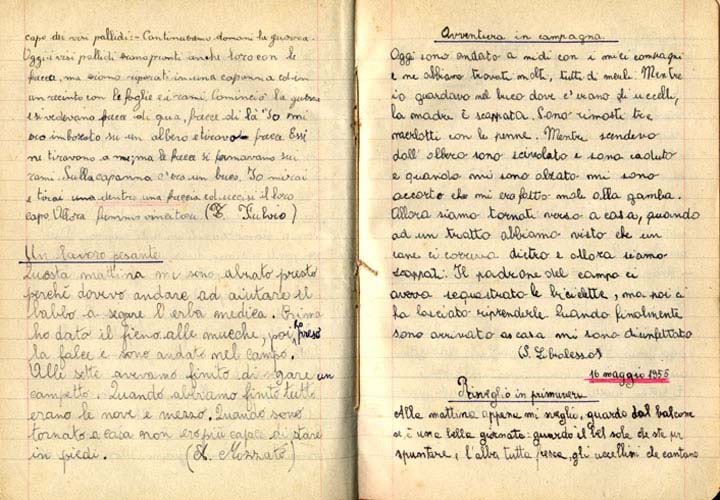 capo dei visi pallidi:- Continueremo domani la guerra.
Oggi i visi pallidi erano pronti anche loro con le
frecce, ma siamo riparati in una capanna ed in
un recinto con le foglie ei rami. Cominciò la guerra
e si vedevano frecce di qua, frecce di là Io mi
ero imboscato su un albero e tiravo frecce. Essi
ne tiravano a me; ma le frecce si fermavano sui
rami. Sulla capanna c'era un buco. Io mirai
e tirai una dentro una freccia ed uccisi il loro
capo. Allora fummo vincitori. (Z. Fulvio)
Un lavoro pesante
Questa mattina mi sono alzato presto
perchè dovevo andare ad aiutare il
babbo a segare l'erba medica. Prima
ho dato il fieno alle mucche, poi ho preso
la falce e sono andato nel campo.
Alle sette avevamo finito di segare un
campetto. Quando abbiamo finito tutto
erano le nove e mezzo. Quando sono
tornato a casa non ero più capace di stare
in piedi. (A. Mozzato)
Avventura in campagna.
Oggi sono andato a nidi con i miei compagni
e ne abbiamo trovati molti, tutti di merli. Mentre
io guardavo nel buco dove c'erano gli uccelli,
la madre è scappata. Sono rimasti tre
merlotti con le penne. Mentre scendevo
dall'albero sono scivolato e sono caduto
e quando mi sono alzato mi sono
accorto che mi ero fatto male alla gamba.
Allora siamo tornati verso a casa, quando
ad un tratto abbiamo visto che un
cane ci correva dietro e allora siamo
scappati. Il padrone del campo ci
aveva sequestrato le biciclette, ma poi ci
ha lasciato riprenderle. Quando finalmente
sono arrivato a casa mi sono disinfettato
(S. Libralesso)
16 maggio 1955
Risveglio in primavera
Alla mattina appena mi sveglio, guardo dal balcone
se è una bella giornata: guardo il bel sole che sta per
spuntare, l'alba tutta fresca, gli uccellini che cantano